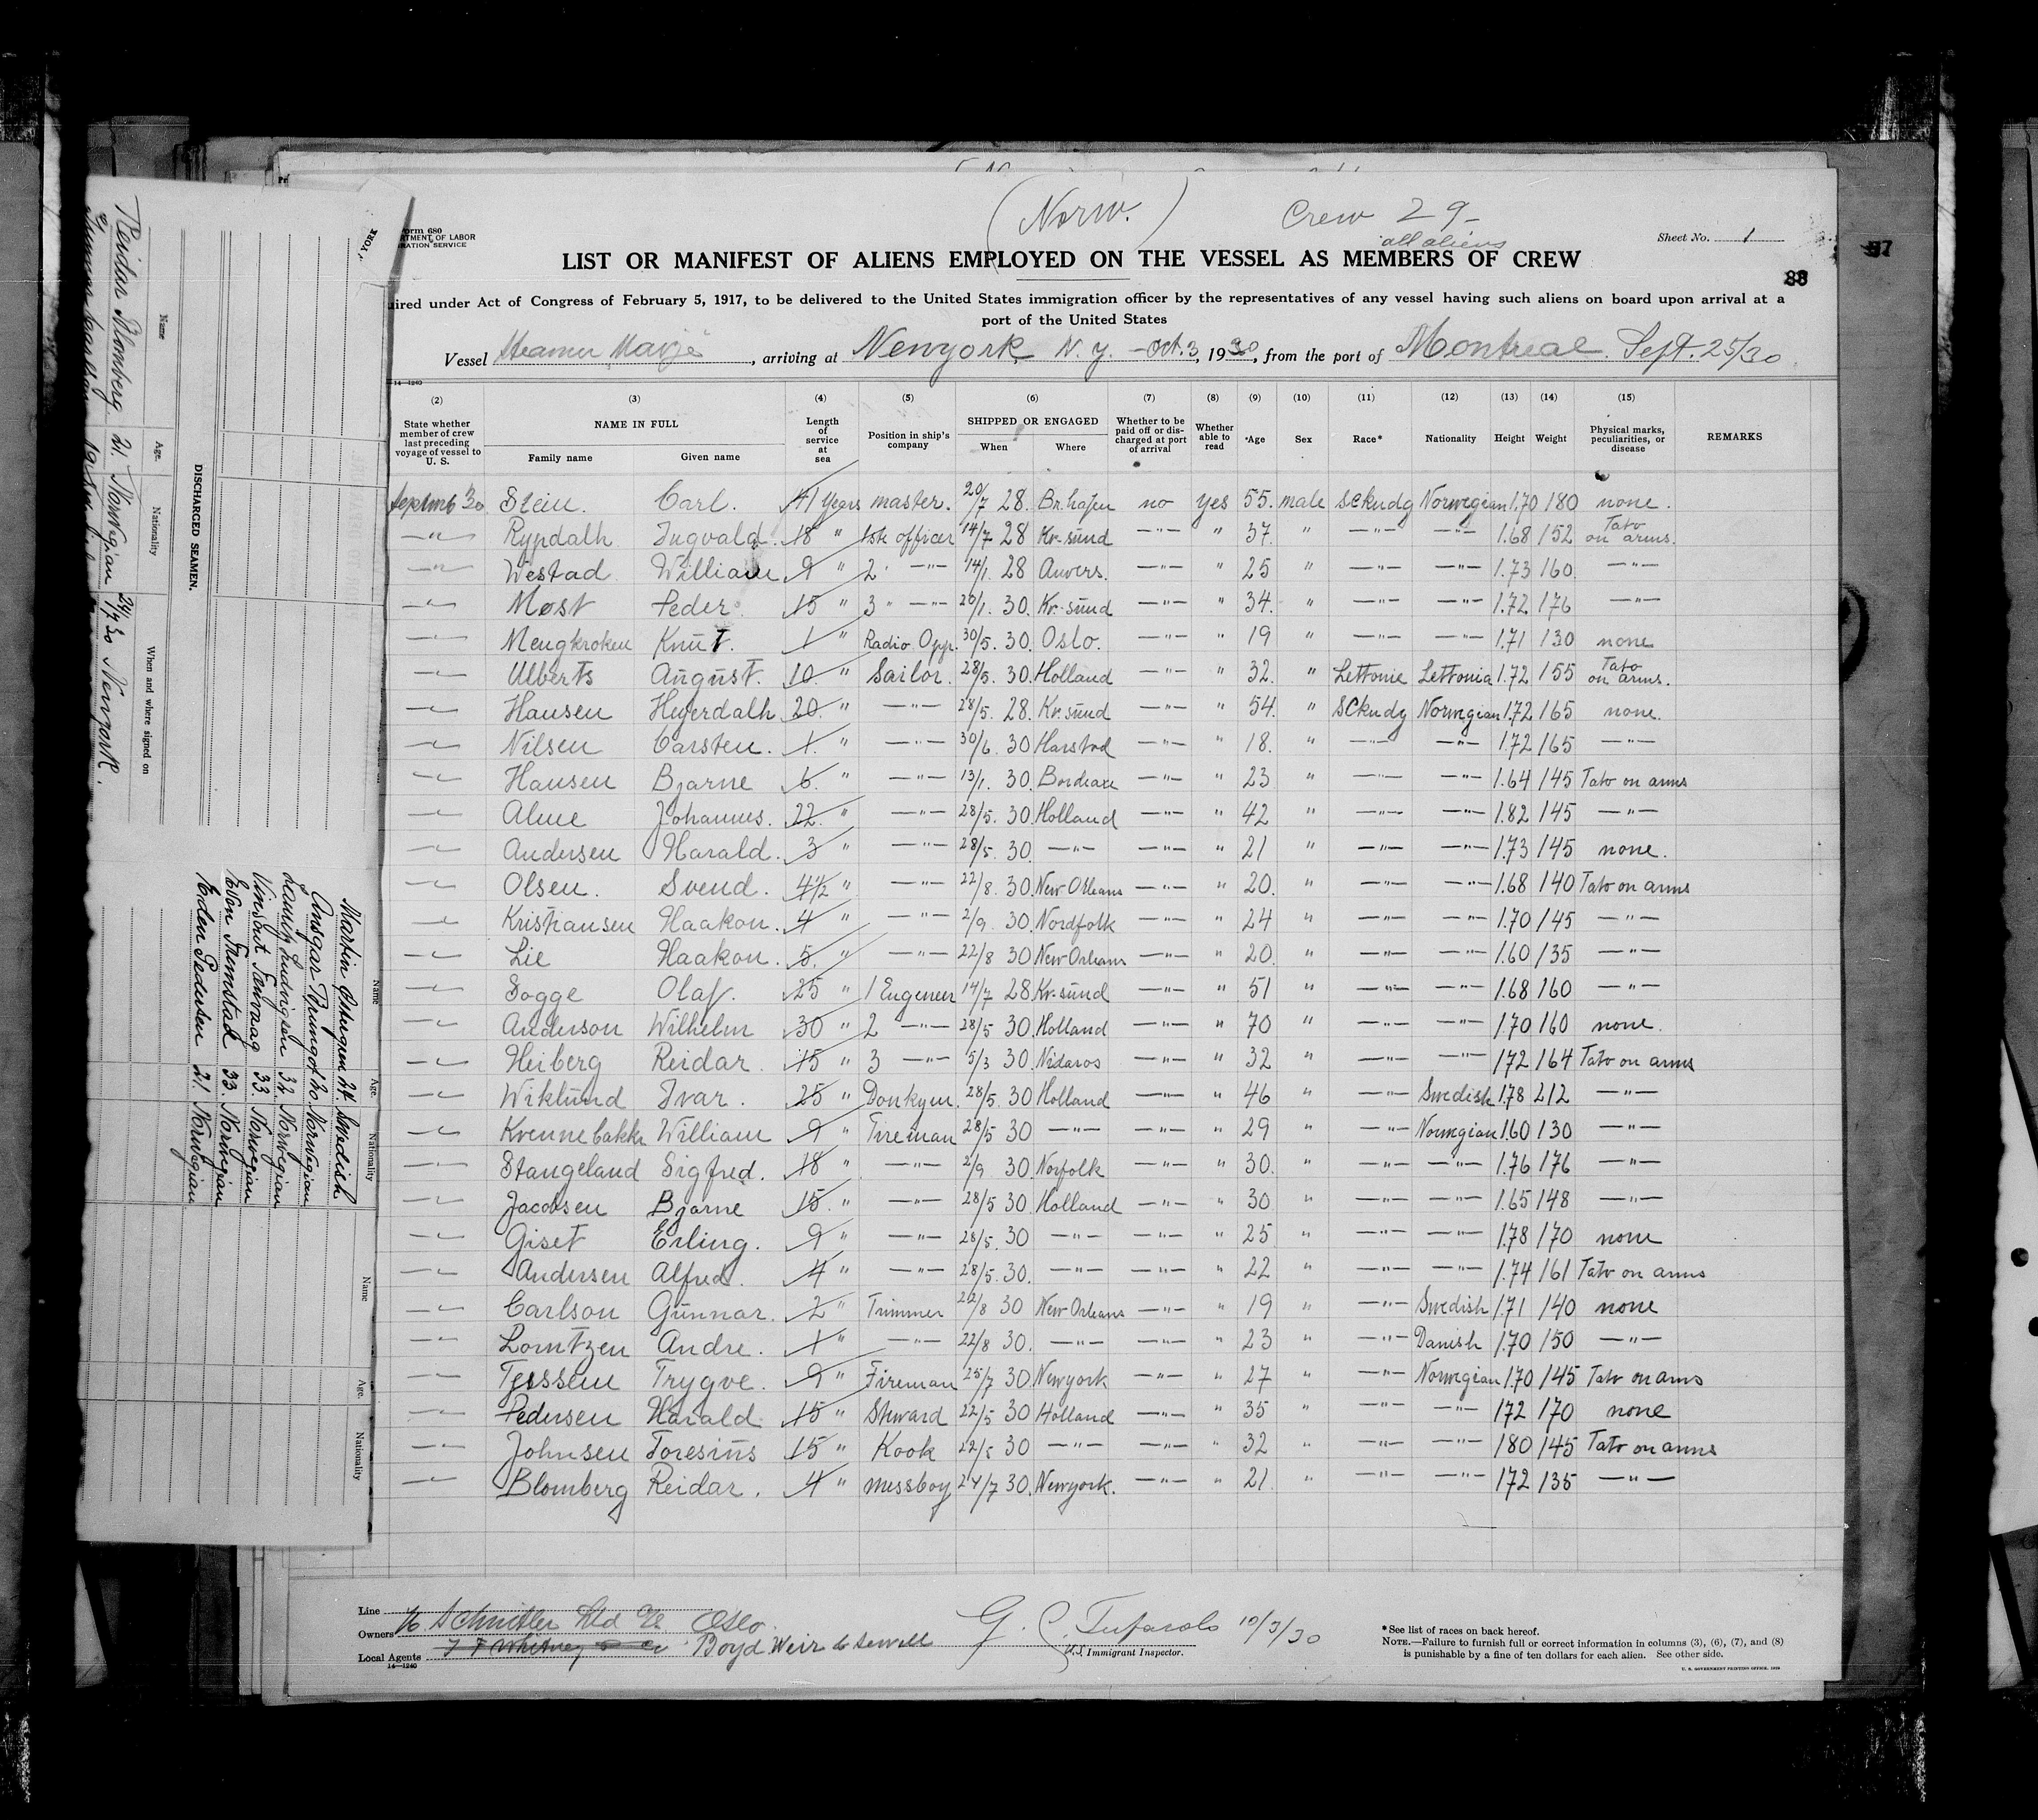 (Norw.) Crew 29-
all aliens
Form 680
Sheet No. 1
LIST OR MANIFEST OF ALIENS EMPLOYED ON THE VESSEL AS MEMBERS OF CREW
88
uired under Act of Congress of February 5, 1917, to be delivered to the United States immigration officer by the representatives of any vessel having such aliens on board upon arrival at a
port of the United States
Vessel Steamer, arriving at Newyork N. y. - Oct. 3, 1930, from the port of Montreal Sept. 25/30
14—1240
(2) (3) (4) (5) (6) (7) (8) (9) (10) (11) (12) (13) (14) (15)
State whether member of crew last preceding voyage of vessel to U. S. NAME IN FULL Family name Given name Length of service at sea Position in ship's company SHIPPED OR ENGAGED When Where Whether to be paid off or discharged at port of arrival Whether able to read Age Sex Race* Nationality Height Weight Physical marks, peculiarities, or disease REMARKS
Stein Carl. 41 Years master. 20/7 28. Br. hafen no yes 55. male Sckndg Norwegian 1.70 180 none.
—"— Rypdalh Ingvald. 18 " 1ste officer 14/7 28 Kr. sund —"— " 37. " —"— —"— 1.68 152 Tato on arms.
—"— Westad William 9 " 2. —"— 14/1. 28 Anvers. —"— " 25 " —"— —"— 1.73 160. —"—
—"— Møst Peder 15 " 3 " —"— 20/1. 30. Kr. sund —"— " 34. " —"— —"— 1.72 176 —"—
—"— Mengkroken Knut. 1 " Radio Opp. 30/5. 30. Oslo. —"— " 19 " —"— —"— 1.71 130 none
—"— Ulberts August. 10 " Sailor. 28/5. 30. Holland —"— " 32. " Lettonie Lettonia 1.72 155 Tato on arms.
—"— Hansen Heyerdalh 20. " —"— 28/5. 28. Kr. sund —"— " 54. " Sckndg Norwegian 1.72 165 none.
—"— Nilsen Carsten. 1. " —"— 30/6. 30 Harstad —"— " 18. " —"— —"— 1.72 165 —"—
—"— Hansen Bjarne 6. " —"— 13/1. 30. Bordeaxe —"— " 23 " —"— —"— 1.64 145 Tato on arms
—"— Alme Johannes. 22. " —"— 28/5. 30. Holland —"— " 42 " —"— —"— 1.82 145 —"—
—"— Andersen Harald. 3 " —"— 28/5. 30. —"— —"— " 21 " —"— —"— 1.73 145 none.
—"— Olsen. Svend. 4½ " —"— 22/8. 30. New Orleans —"— " 20. " —"— —"— 1.68 140 Tato on arms
—"— Kristiansen Haakon. 4 " —"— 2/9. 30. Nordfolk —"— " 24 " —"— —"— 1.70 145 —"—
—"— Lie Haakon. 5. " —"— 22/8 30. New Orleans —"— " 20. " —"— —"— 1.60 135 —"—
—"— Sogge Olaf. 25 " 1 Engeneer 14/7 28 Kr. sund —"— " 51 " —"— —"— 1.68 160 —"—
—"— Anderson Wilhelm 30 " 2 —"— 28/5 30. Holland —"— " 70 " —"— —"— 1.70 160 none.
—"— Heiberg Reidar. 15 " 3 —"— 5/3 30. Nidaros —"— " 32 " —"— —"— 172 164 Tato on arms
—"— Wiklund Ivar. 25 " Donkym. 28/5. 30 Holland —"— " 46 " —"— Swedish 1.78 212 —"—
—"— Kvennebakke William 9 " Fireman 28/5 30 —"— —"— " 29 " —"— Norwegian 1.60 130 —"—
—"— Stangeland Sigfred. 18 " —"— 2/9 30. Norfolk —"— " 30. " —"— —"— 1.76 176 —"—
—"— Jacobsen Bjarne 15. " —"— 28/5 30 Holland —"— " 30 " —"— —"— 1.65 148 —"—
—"— Giset Erling. 9 " —"— 28/5. 30 —"— —"— " 25. " —"— —"— 1.78 170 none
—"— Andersen Alfred. 4 " —"— 28/5. 30. —"— —"— " 22 " —"— —"— 1.74 161 Tato on arms
—"— Carlson Gunnar. 2 " Trimmer 22/8 30 New Orleans —"— " 19 " —"— Swedish 1.71 140 none
—"— Lorntzen Andre. 1 " —"— 22/8 30. —"— —"— " 23 " —"— Danish 1.70 150 —"—
—"— Tessem Trygve. 9 " Fireman 25/7 30. Newyork —"— " 27 " —"— Norwegian 1.70 145 Tato on arms
—"— Pedersen Harald 15 " Steward 22/5 30 Holland —"— " 35 " —"— —"— 172 170 none
—"— Johnsen Toresius 15 " Kook 22/5 30 —"— —"— " 32 " —"— —"— 180 145 Tato on arms
—"— Blomberg Reidar. 4 " messboy 24/7 30. Newyork. —"— " 21. " —"— —"— 172 135 —"—
Line
Owners Oslo
Local Agents Boyd Weir & Sewell
14—1240
G. C. Tufarolo 10/3/30
U.S. Immigrant Inspector.
*See list of races on back hereof.
NOTE.—Failure to furnish full or correct information in columns (3), (6), (7), and (8)
is punishable by a fine of ten dollars for each alien. See other side.
YORK
DISCHARGED SEAMEN.
Name Age. Nationality When and where signed on
Reidar Blomberg 21. Norwegian 24/7 30 Newyork.
Name Age. Nationality
Martin 24. Swedish
Ansgar 20. Norwegian
Ludvigsen 32. Norwegian
33. Norwegian
Even 33. Norwegian
Pedersen 21. Norwegian
Name Age. Nationality